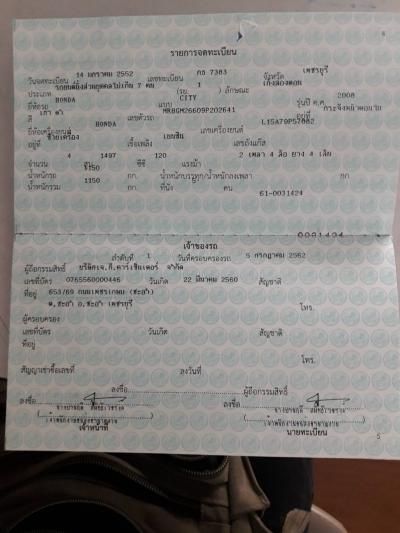 6
รายการจดทะเบียน
วันจดทะเบียน 14 มกราคม 2552 เลขทะเบียน กธ 7383 จังหวัด เพชรบุรี
ประเภท รถยนต์นั่งส่วนบุคคลไม่เกิน 7 คน (รย. 1 ) ลักษณะ เก๋งสองตอน
ยี่ห้อรถ HONDA แบบ CITY รุ่นปี ค.ศ. 2008
สี เทา ดำ เลขตัวรถ MRHGM26609P202641 อยู่ที่
ยี่ห้อเครื่องยนต์ HONDA เลขเครื่องยนต์ L15A79P57082
อยู่ที่ เชื้อเพลิง เบนซิน เลขถังแก๊ส
จำนวน 4 1497 ซีซี 120 แรงม้า 2 เพลา 4 ล้อ ยาง 4 เส้น
น้ำหนักรถ กก. น้ำหนักบรรทุก/น้ำหนักลงเพลา กก
น้ำหนักรวม 1150 กก. ที่นั่ง คน
61-0031424
เจ้าของรถ
ลำดับที่ 1 วันที่ครอบครองรถ 5 กรกฎาคม 2562
ผู้ถือกรรมสิทธิ์
เลขที่บัตร 0765560000446 วันเกิด 22 มีนาคม 2560 สัญชาติ
ที่อยู่ 653/69 ถนนเพชรเกษม (ชะอำ)
ต.ชะอำ อ.ชะอำ เพชรบุรี โทร.
ผู้ครอบครอง
เลขที่บัตร วันเกิด สัญชาติ
ที่อยู่
โทร.
สัญญาเช่าซื้อเลขที่ ลงวันที่
ลงชื่อ ผู้ถือกรรมสิทธิ์
ลงชื่อ ลงชื่อ
เจ้าหน้าที่ นายทะเบียน
5